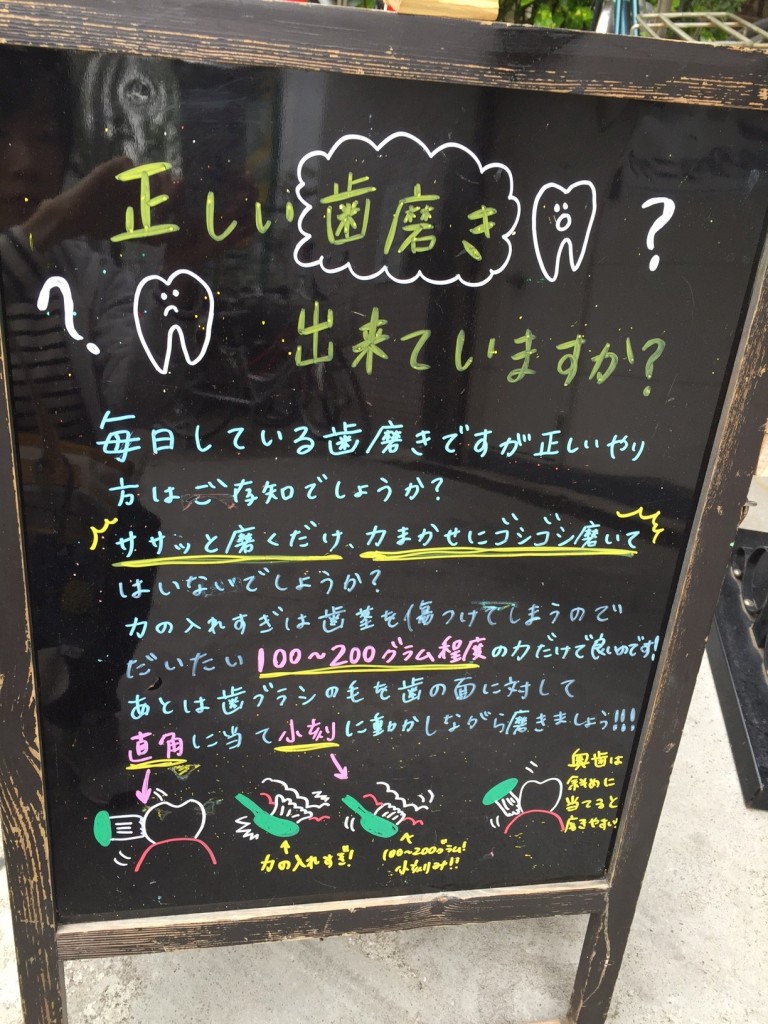 正しい歯磨き?
?出来ていますか?
毎日している歯磨きですが正しいやり
方はご存知でしょうか?
ササッと磨くだけ、力まかせにゴシゴシ磨いて
はいないでしょうか?
力の入れすぎは歯茎を傷つけてしまうので
だいたい100~200グラム程度の力だけで良いのです!
あとは歯ブラシの毛を歯の面に対して
直角に当て小刻に動かしながら磨きましょう!!!
力の入れすぎ!
100~200グラム!
小刻み!!
奥歯は
斜めに
当てると
磨きやすい!